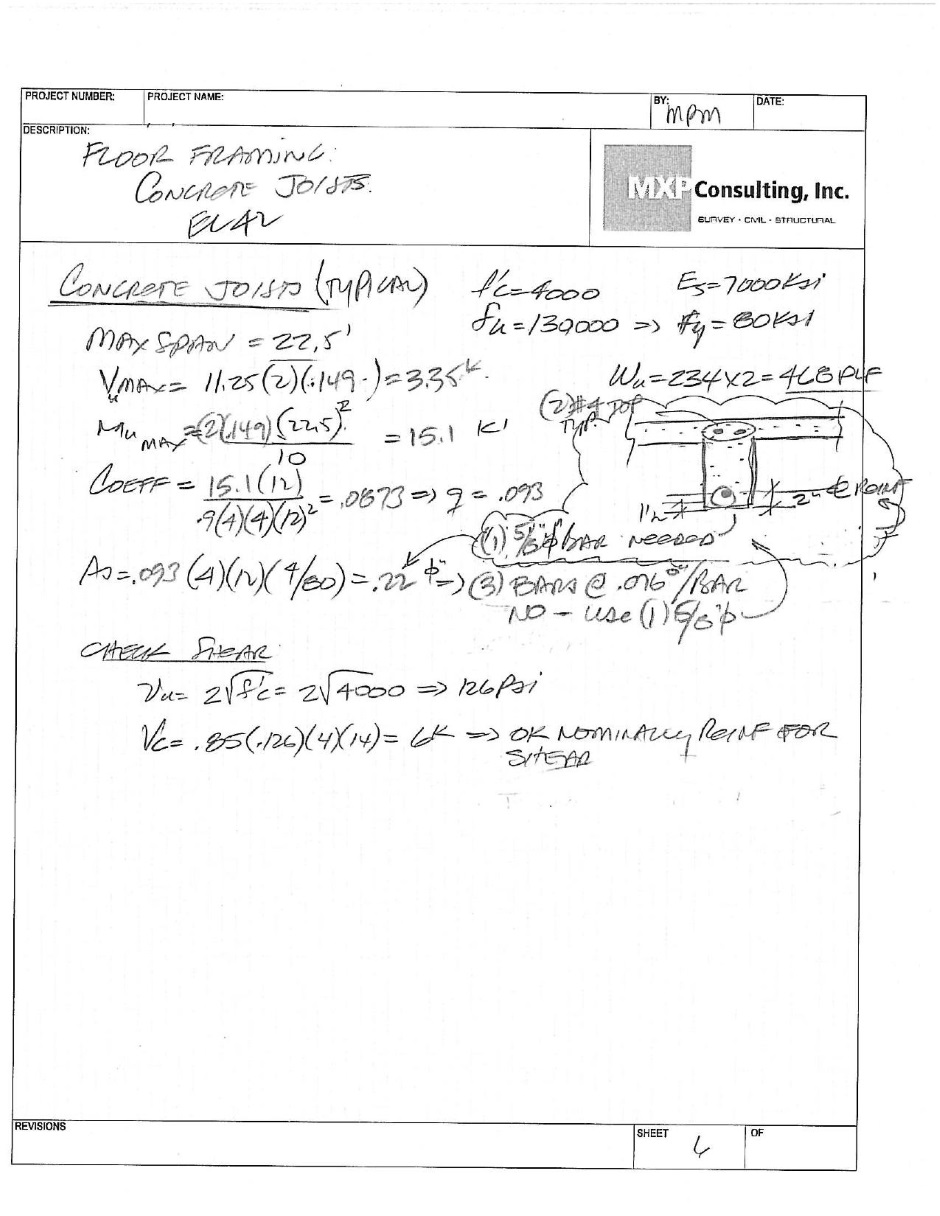 PROJECT NUMBER: PROJECT NAME: BY: MPM DATE:
DESCRIPTION:
FLOOR FRAMING:
CONCRETE JOISTS.
MXP Consulting, Inc.
SURVEY - CIVIL - STRUCTURAL
CONCRETE JOISTS (TYPICAL) f'c=4000 Es=7000KSi
fu=130000 => Fy=80KSI
MAX SPAN = 22.5'
VuMAX = 11.25(2)(.149)=3.35K. Wu=234X2=468 PLF
(2)#4 TOP
TYP.
MuMAX = (2)(.149)(22.5)²/10 = 15.1 K'
COEFF = 15.1(12)/.9(4)(4)(12)² = .0873 => q = .093
1½" 2" ℄ REINF
(1) 5/8"φ BAR NEEDED
As=.093(4)(12)(4/80)=.22 ▫" => (3) BARS @ .076 ▫"/BAR
NO - USE (1) 5/8"φ
CHECK SHEAR
Vu= 2√f'c = 2√4000 => 126 PSi
Vc= .85(.126)(4)(14)= 6K => OK NOMINALLY REINF FOR
SHEAR
REVISIONS SHEET 6 OF